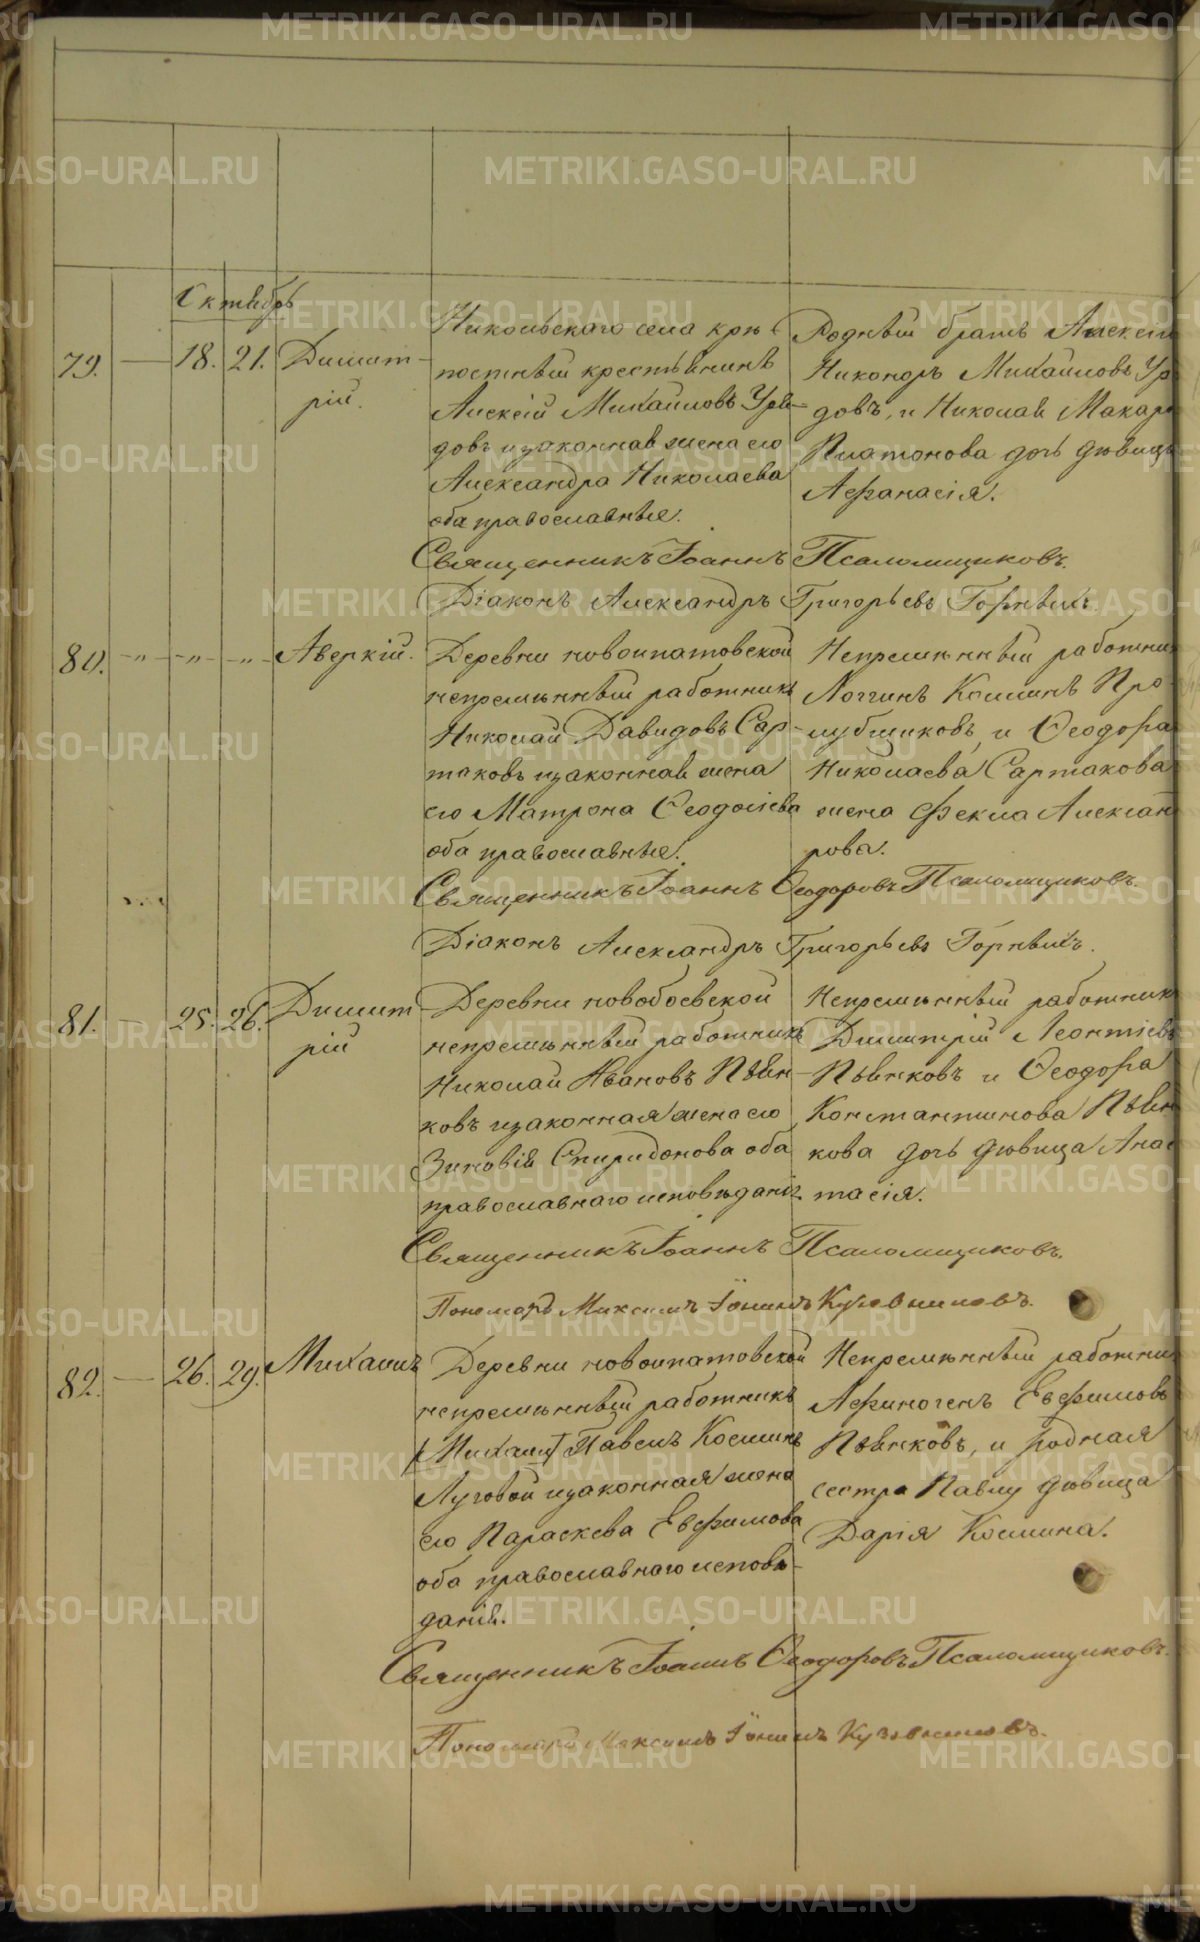 Октябрь
79. — 18. 21. Димит-
рій.
Никольскаго села крѣ-
постный крестьянинъ
Алексій Михайловъ
довъ и законная жена его
Александра Николаева
оба православные.
Родный братъ Алексія
Никоноръ Михайловъ
довъ, и Николая Макар
Платонова дочь дѣвица
Афанасія.
Священникъ Іоаннъ Псаломщиковъ.
Діаконъ Александръ Григорьевъ Горныхъ.
80. — „ — „ — „ — Аверкій.
Деревни новоипатовской
непремѣнный работникъ
Николай Давидовъ Сар-
таковъ и законная жена
его Матрона Ѳеодосіева
оба православные.
Непремѣнный работни
Логгинъ Косминъ Про-
лубщиковъ, и Ѳеодора
Николаева Сартакова
жена Фекла Алексан
рова.
Священникъ Іоаннъ Ѳеодоровъ Псаломщиковъ.
Діаконъ Александръ Григорьевъ Горныхъ.
81. — 25. 26. Димит-
рій
Деревни новобоевской
непремѣнный работникъ
Николай Ивановъ Пьян-
ковъ и законная жена его
Зиновія Спиридонова оба
православнаго исповѣданія
Непремѣнный работникъ
Димитрій Леонтіевъ
Пьянковъ и Ѳеодора
Константинова Пьян
кова дочь дѣвица Анас
тасія.
Священникъ Іоаннъ Псаломщиковъ.
Пономарь Максимъ Іонинъ Кузовниковъ.
82. — 26. 29. Михаилъ
Деревни новоипатовской
непремѣнный работникъ
(Михаил) Павелъ Косминъ
Луговой и законная жена
его Параскева Евфимова
оба православнаго исповѣ-
данія.
Непремѣнный работни
Афиногенъ Евфимовъ
Пьянковъ, и родная
сестра Павлу дѣвица
Дарія Космина.
Священникъ Іоаннъ Ѳеодоровъ Псаломщиковъ.
Пономарь Максимъ Іонинъ Кузовниковъ.
METRIKI.GASO-URAL.RU